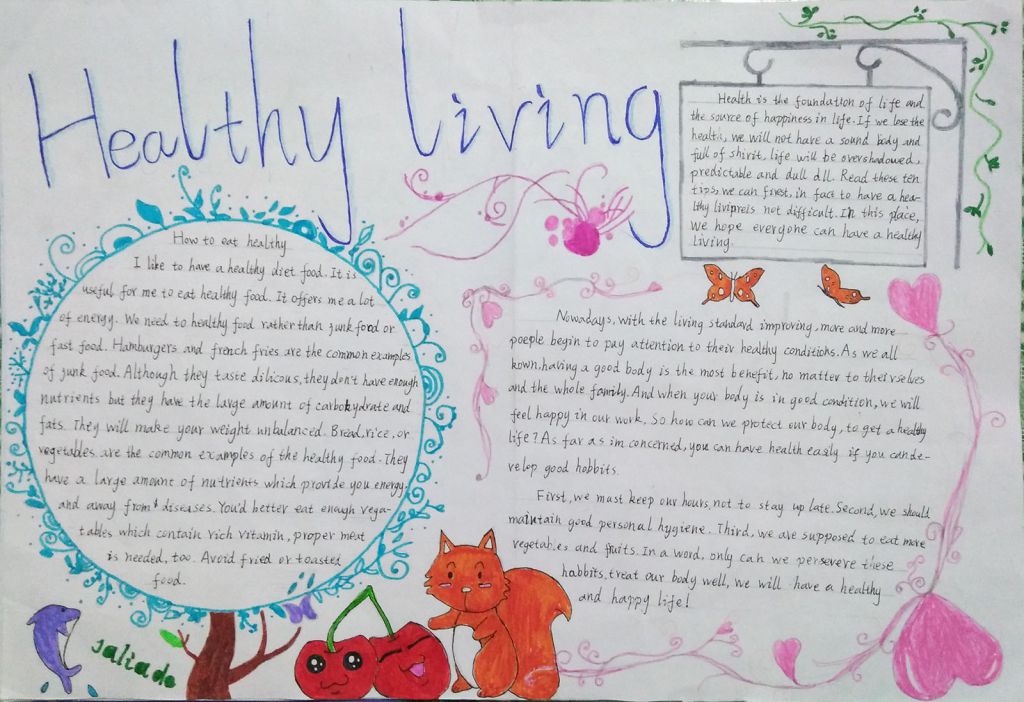 Healthy living
Health is the foundation of life and
the source of happiness in life. If we lose the
health, we will not have a sound body and
full of shirit, life will be overshadowed,
predictable and dull dll. Read these ten
tips, we can first, in fact to have a hea-
lthy livipreis not difficult. In this place,
we hope everyone can have a healthy
living.
How to eat healthy
I like to have a healthy diet food. It is
useful for me to eat healthy food. It offers me a lot
of energy. We need to healthy food rather than junk food or
fast food. Hamburgers and french fries are the common examples
of junk food. Although they taste dilicous, they don't have enough
nutrients but they have the large amount of carbohydrate and
fats. They will make your weight unbalanced. Bread, rice, or
vegetables are the common examples of the healthy food. They
have a large amount of nutrients which provide you energy
and away from diseases. You'd better eat enough vega-
tables which contain rich vitamin, proper meat
is needed, too. Avoid fried or toasted
food.
Nowadays, with the living standard improving, more and more
poeple begin to pay attention to their healthy conditions. As we all
kown, having a good body is the most benefit, no matter to theirselves
and the whole family. And when your body is in good condition, we will
feel happy in our work. So how can we protect our body, to get a healthy
life? As far as im concerned, you can have health easily if you can de-
velop good habbits.
First, we must keep our hours, not to stay up late. Second, we should
maintain good personal hygiene. Third, we are supposed to eat more
vegetables and fruits. In a word, only can we persevere these
habbits, treat our body well, we will have a healthy
and happy life!